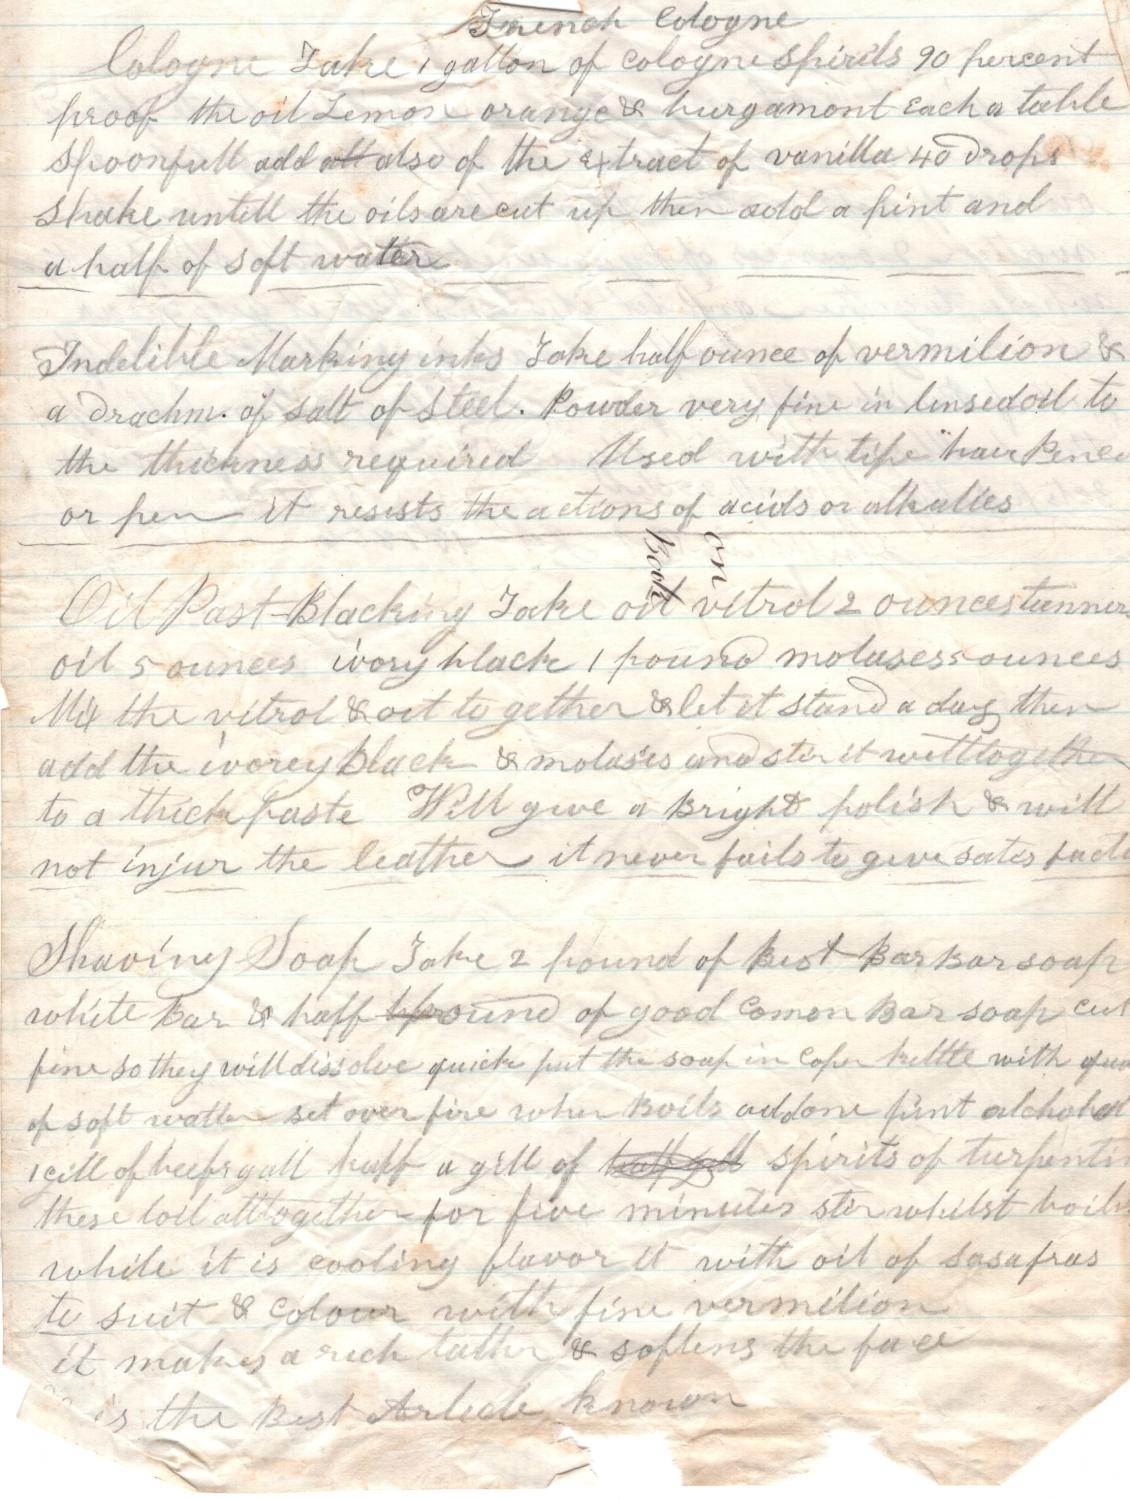 French Cologne
Cologne Take 1 gallon of cologne spirits 90 percent
proof the oil Lemon orange & burgamont Each a table
spoonfull add all also of the extract of vanilla 40 drops
Shake untill the oils are cut up then add a pint and
a half of soft water
Indelible Marking inks Take half ounce of vermilion &
a drachm. of salt of steel. Powder very fine in linsedoil to
the thickness required Used with tipe "hair Pencil
or pen it resists the actions of acids or alkalies
on
Book
Oil Past Blacking Take oil vitrol 2 ounces tanners
oil 5 ounces ivory black 1 pound molases 5 ounces
Mix the vitrol & oil to gether & let it stand a day then
add the ivorey Black & molases and stir it well together
to a thick paste Will give a Bright polish & will
not injur the leather it never fails to give satisfacti
Shaving Soap Take 2 pound of Best Bar Bar soap
white Bar & half pound of good Comon Bar soap cut
fine so they will dissolve quick put the soap in Coper kettle with
of soft watter set over fire when Boils add one pint alchohol
1 gill of beefs gall half a gill of spirits of turpentin
these boil all together for five minutes stir whilst boils
while it is cooling flavor it with oil of sasafras
to suit & Colour with fine vermilion
it makes a rich lather & softens the face
is the Best Artecle known